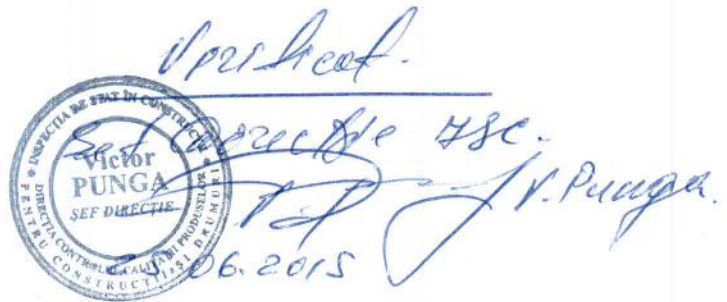 Verificat.
Șef Direcție ISC.
V. Punga.
INSPECȚIA DE STAT ÎN CONSTRUCȚII
DIRECȚIA CONTROLUL CALITĂȚII PRODUSELOR
PENTRU CONSTRUCȚII ȘI DRUMURI
Victor
PUNGA
ȘEF DIRECȚIE
06.2015